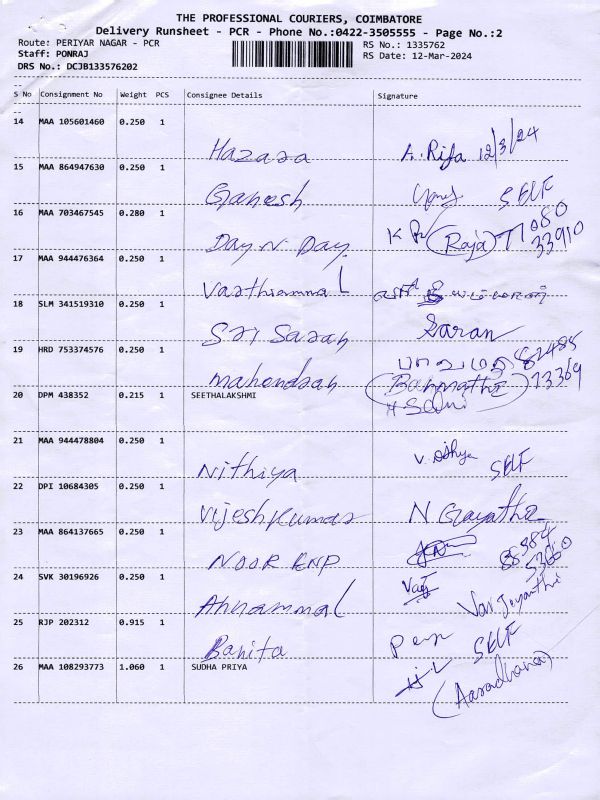 THE PROFESSIONAL COURIERS, COIMBATORE
Delivery Runsheet - PCR - Phone No.:0422-3505555 - Page No.:2
Route: PERIYAR NAGAR - PCR
RS No.: 1335762
Staff: PONRAJ
RS Date: 12-Mar-2024
DRS No.: DCJB133576202
S No Consignment No Weight PCS Consignee Details Signature
14 MAA 105601460 0.250 1
Hazara A. Rifa 12/3/24
15 MAA 864947630 0.250 1
Ganesh SELF
16 MAA 703467545 0.280 1
Day N Day. K (Raja) 77080 33910
17 MAA 944476364 0.250 1
18 SLM 341519310 0.250 1
Sri Saran Saran
19 HRD 753374576 0.250 1
Mahendran 82485 73369
20 DPM 438352 0.215 1 SEETHALAKSHMI
21 MAA 944478804 0.250 1
Nithiya SELF
22 DPI 10684305 0.250 1
Vijeshkumar N Gayathri
23 MAA 864137665 0.250 1
NOOR ENP
24 SVK 30196926 0.250 1
Annammal
25 RJP 202312 0.915 1
Banita SELF
26 MAA 108293773 1.060 1 SUDHA PRIYA
(Aaradhana)